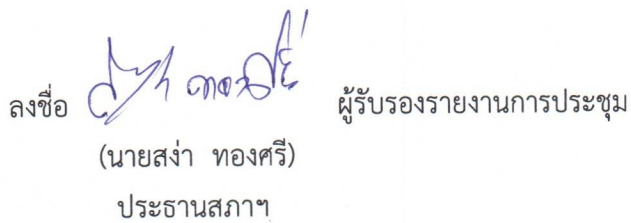 ลงชื่อ สง่า ทองศรี ผู้รับรองรายงานการประชุม
(นายสง่า ทองศรี)
ประธานสภาฯ